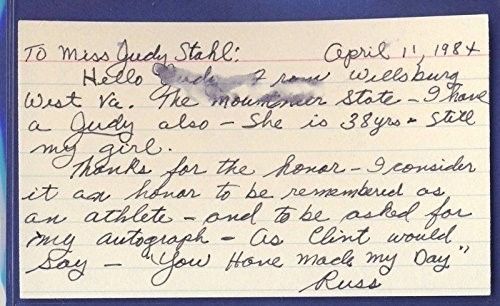 To Miss Judy Stahl: April 11, 1984
Hello Judy From Wellsburg
West Va. The mountineer State - I have
a Judy also - She is 38 yrs - Still
my girl.
Thanks for the honor - I consider
it an honor to be remembered as
an athlete - and to be asked for
my autograph - As Clint would
Say - "You Have made my Day"
Russ